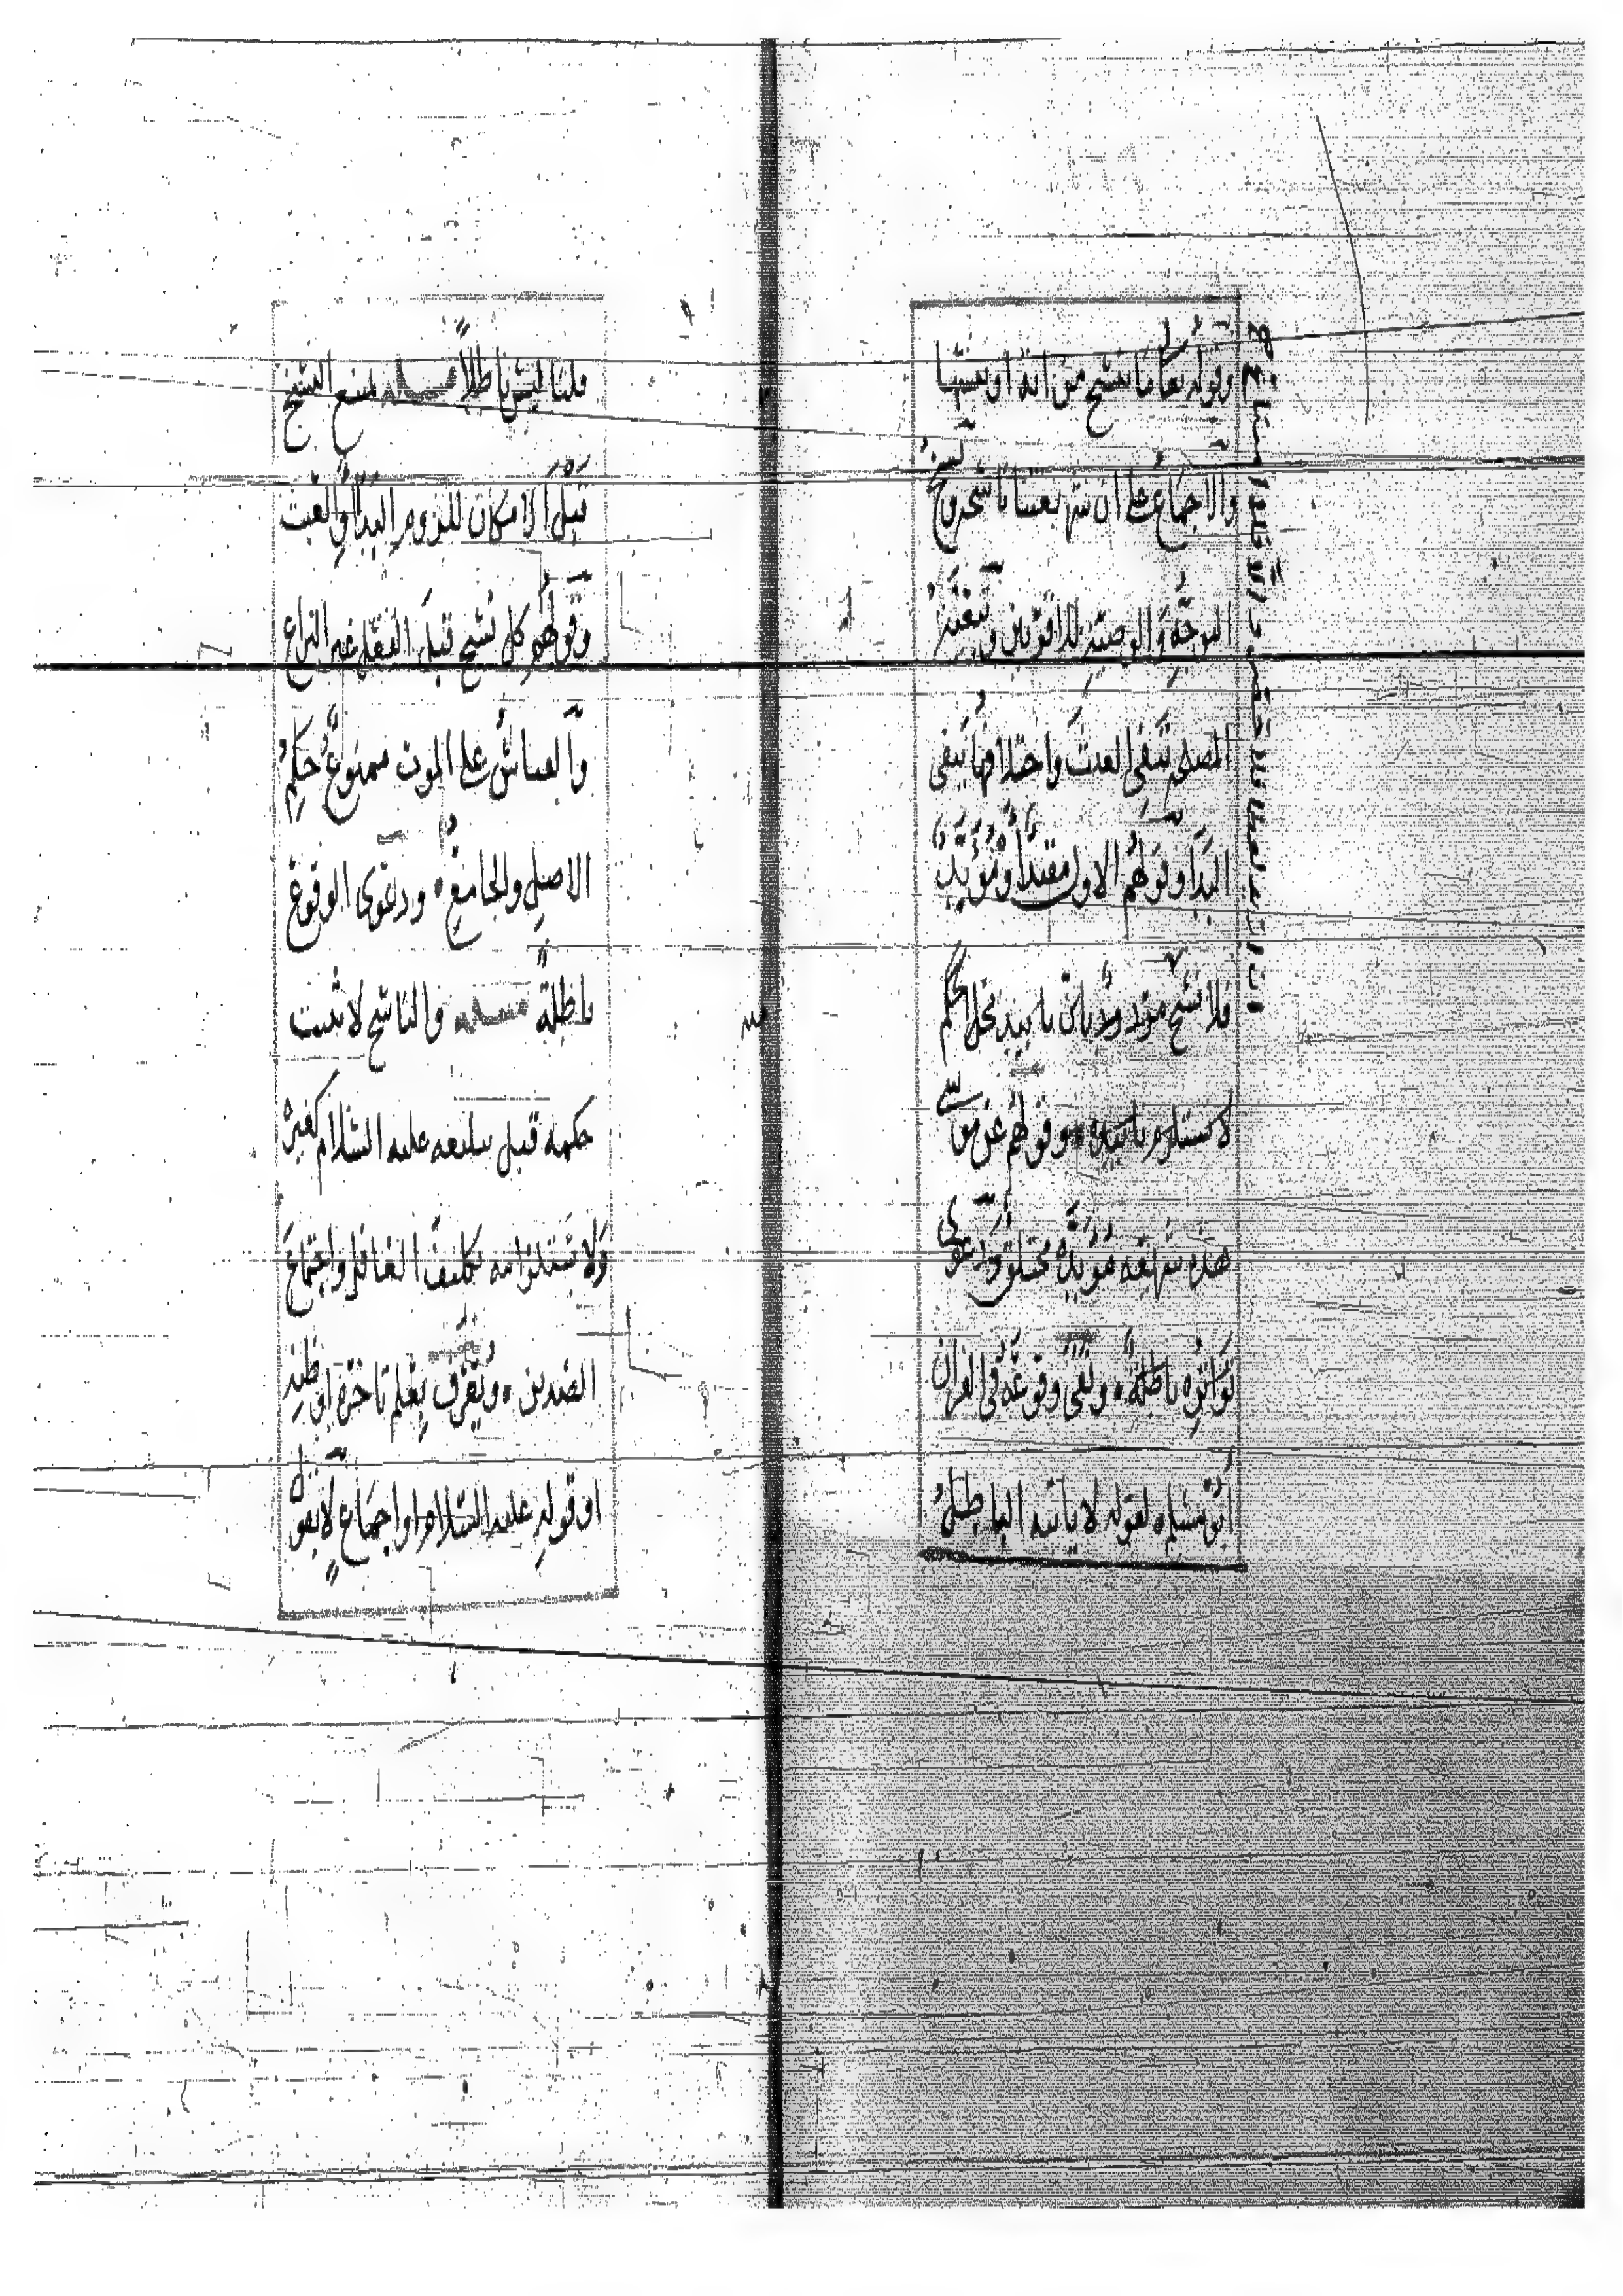 وقوله تعالى ما ننسخ من اية او ننسها
والاجماع على ان شريعتنا ناسخة ونسخ
التوجه والوصية للاقربين وتغير
المصلحة ينفي العبث واختلافها ينفي
البدا وقولهم الاول مقيدا ومؤبد
فلا نسخ مردود بان تابيد محل الحكم
لا يستلزم تابيده وقولهم عن موسى
هذه شريعته مؤبدة مختلق ودعوى
تواتره باطلة ونفي وقوعه في القران
ابو مسلم لقوله لا ياتيه الباطل
قلنا ليس باطلا مسله يمنع النسخ
قبل الامكان للزوم البدا والعبث
وقولهم كل نسخ قبل الفعل غير النزاع
والقياس على الموت ممنوع حكم
الاصل والجامع ودعوى الوقوع
باطلة مسله والناسخ لا يثبت
حكمه قبل تبليغه عليه السلام كغيره
ولا يستلزامه تكليف الغافل واجتماع
الضدين ويعرف بعلم تاخره او ظنه
او قوله عليه السلام او اجماع لا بقول